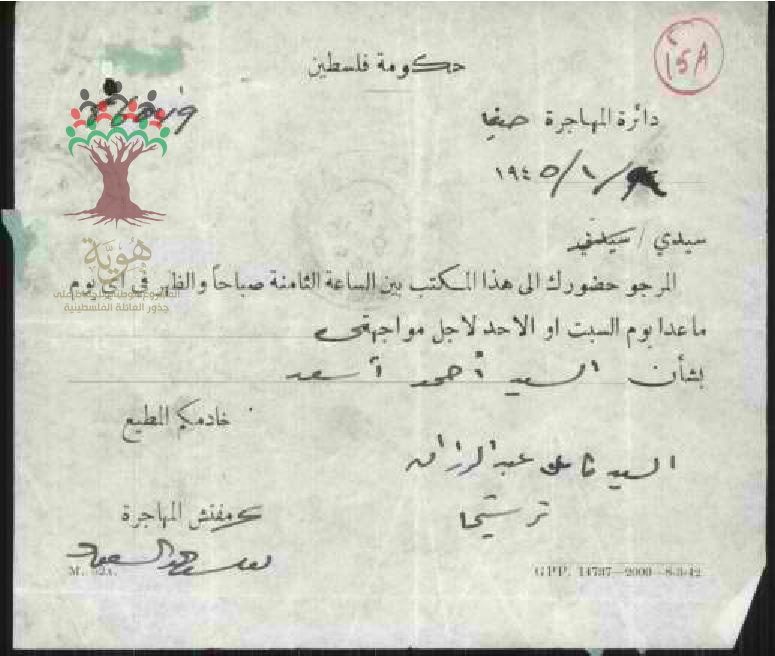 حكومة فلسطين
15A
دائرة المهاجرة حيفا
١٩٤٥/١/
سيدي / سيدتي
المرجو حضورك الى هذا المكتب بين الساعة الثامنة صباحاً والظهر في اي يوم
ماعدا يوم السبت او الاحد لاجل مواجهتي
بشأن السيد أحمد أسعد
خادمكم المطيع
السيد عبد الرزاق
ترشيحا
مفتش المهاجرة
M. 32A.
GPP. 14737—2000—8-3-42
هُويَّة
جذور العائلة الفلسطينية